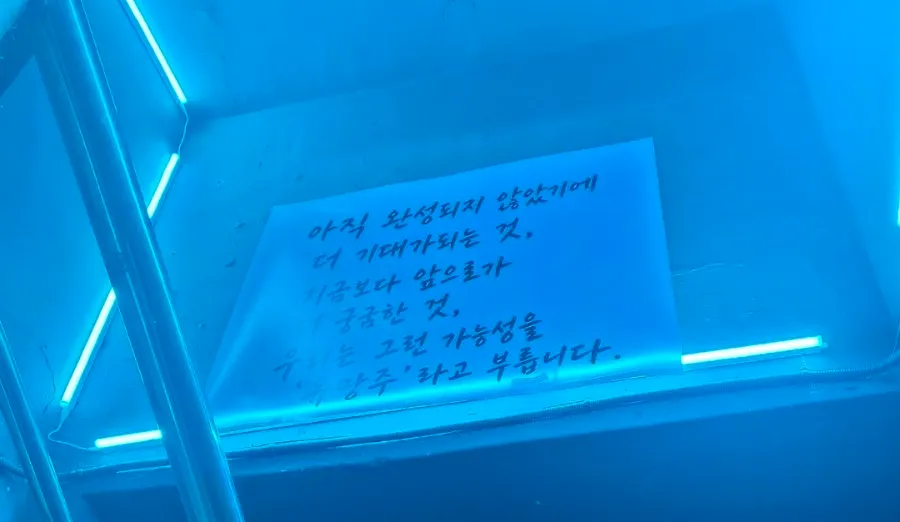 아직 완성되지 않았기에
더 기대가되는 것,
지금보다 앞으로가
궁굼한 것,
우리는 그런 가능성을
라고 부릅니다.